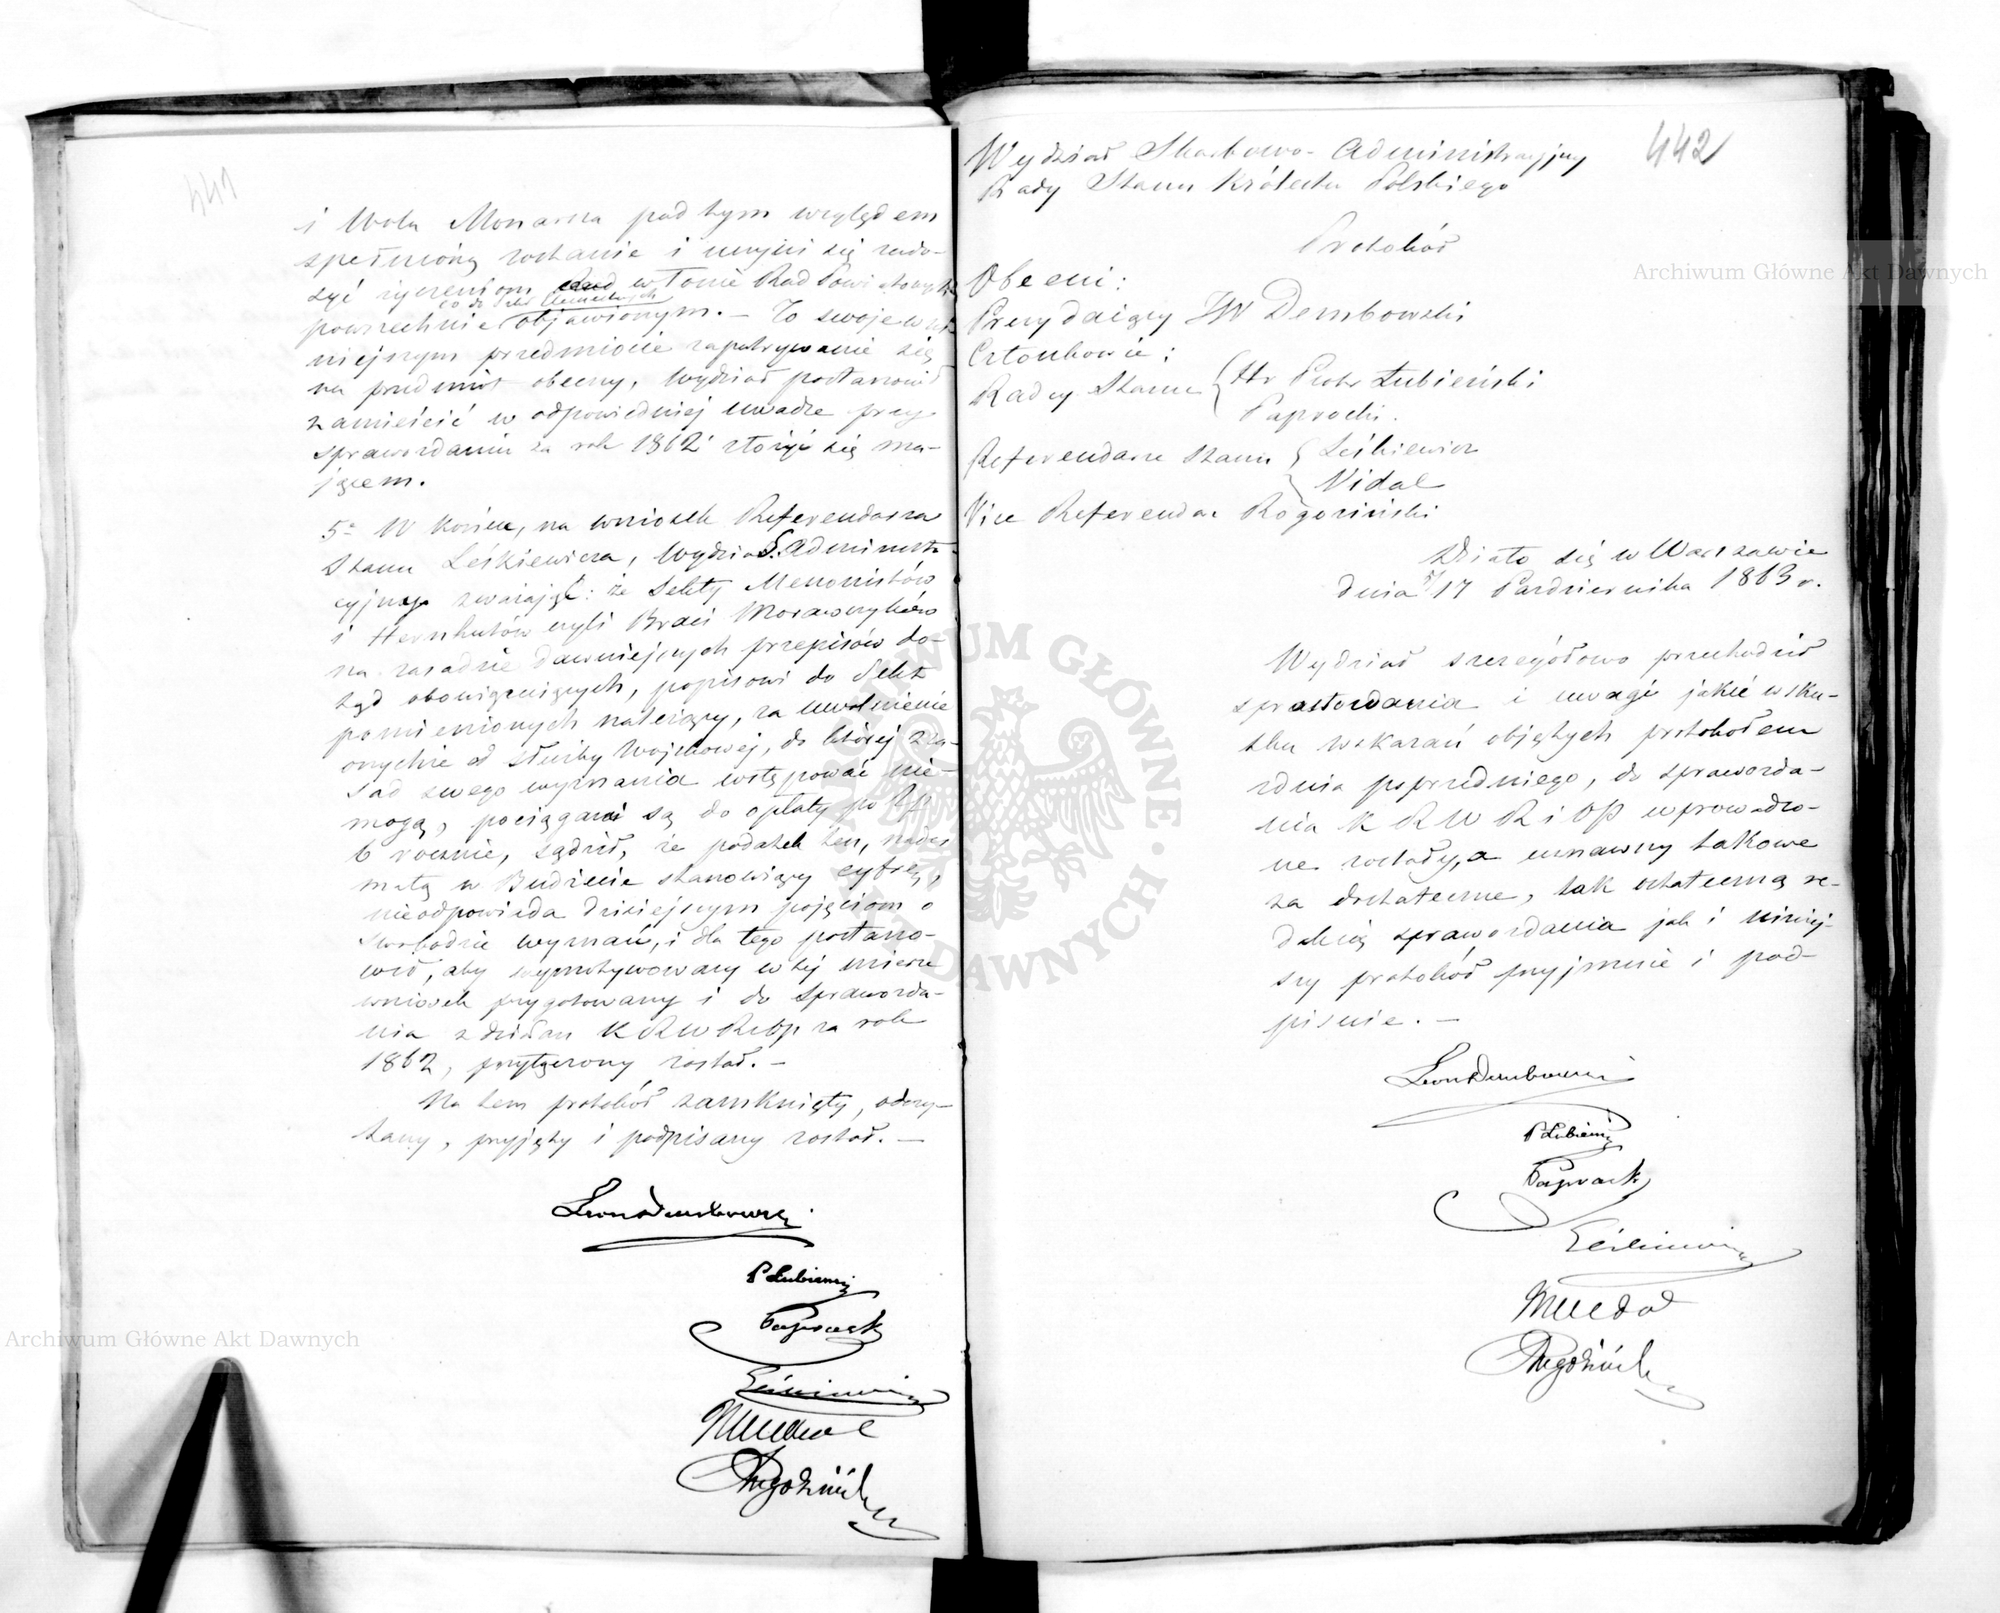 441
i Wola Monarsza pod tym względem
spełnioną zostanie i uczyni się zado-
syć życzeniom w łonie Rad Powiatowych
co do dróg
powszechnie objawionym. – To swoje w ni-
niejszym przedmiocie zapatrywanie się
na przedmiot obecny, Wydział postanowił
zamieścić w odpowiedniej uwadze przy
sprawozdaniu za rok 1862 złożyć się ma-
jącem.
5º W końcu, na wniosek Referendarza
Stanu Leśkiewicza, Wydział S. Administra-
cyjny zważając: że Sekty Menonistów
i Hernhutów czyli Braci Morawczyków
na zasadzie dawniejszych przepisów do-
tąd obowiązujących, popisowi do Sekt
pomienionych należący, za uwolnienie
onychże od służby Wojskowej, do której z za-
sad swego wyznania wstępować nie-
mogą, pociągani są do opłaty po Rsr
6 rocznie, sądził, że podatek ten, nader
małą w Budżecie stanowiący cyfrę,
nieodpowiada dzisiejszym pojęciom o
swobodzie wyznań, i dla tego postano-
wił, aby umotywowany w tej mierze
wniosek przygotowany i do Sprawozda-
nia z działań K R W R i O p za rok
1862, przyłączony został. –
Na tem protokół zamknięty, odczy-
tany, przyjęty i podpisany został. –
Leon Dembowski
P Łubieński
Paprocki
Leśkiewicz
Vidal
Rogoziński
442
Wydział Skarbowo-Administracyjny
Rady Stanu Królestwa Polskiego
Protokół
Obecni:
Prezydujący JW Dembowski
Członkowie:
Radcy Stanu { Hr Piotr Łubieński
Paprocki.
Referendarze Stanu { Leśkiewicz
Vidal
Vice Referendarz Rogoziński
Działo się w Warszawie
dnia 5/17 Października 1863 r.
Wydział szczegółowo przechodził
sprawozdania i uwagi jakie w sku-
tku wskazań objętych protokołem
z dnia poprzedniego, do sprawozda-
nia K R W R i O P wprowadzo-
ne zostały, a uznawszy takowe
za dostateczne, tak ostateczną re-
dakcię sprawozdania jak i niniej-
szy protokół przyjmuje i pod-
pisuje. –
Leon Dembowski
P Łubieński
Paprocki
Leśkiewicz
Vidal
Rogoziński
Archiwum Główne Akt Dawnych
Archiwum Główne Akt Dawnych
ARCHIWUM GŁÓWNE AKT DAWNYCH